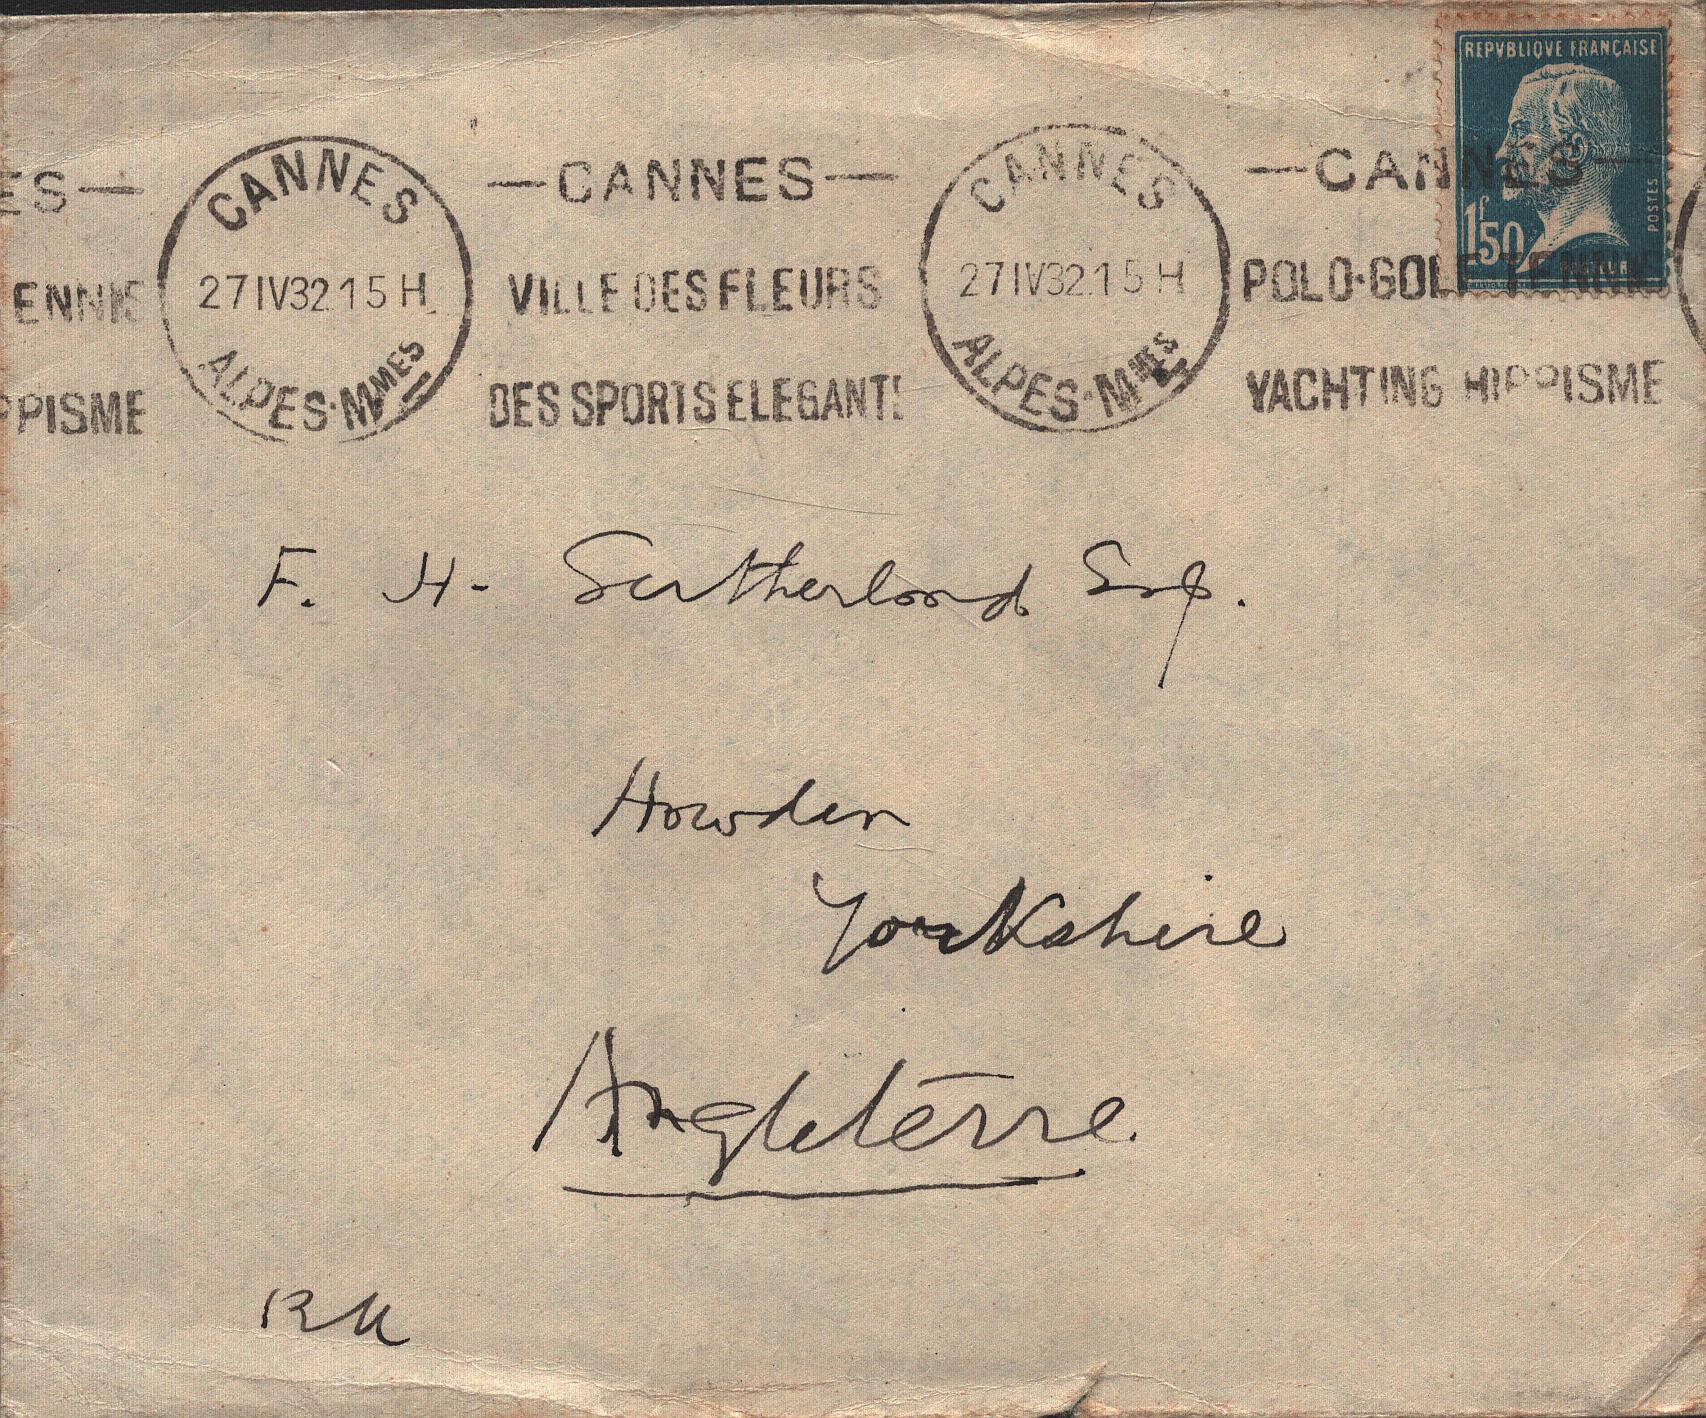 REPVBLIQVE FRANÇAISE
1f50
POSTES
PASTEUR
ES— CANNES —CANNES— CANNES —CANNES—
ENNIS 27 IV 32 15 H VILLE DES FLEURS 27 IV 32 15 H POLO·GOLF TENNIS
PPISME ALPES-MMES DES SPORTS ELEGANTS ALPES-MMES YACHTING HIPPISME
F. H- Sutherland Esq.
Howden
Yorkshire
Angleterre
RK